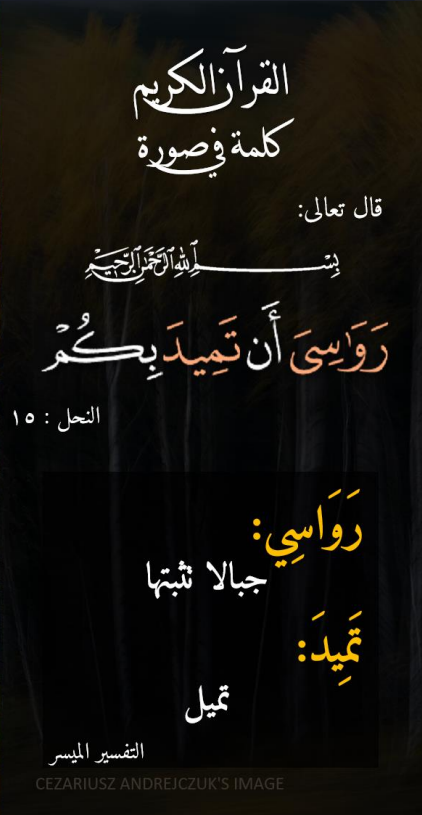 القرآن الكريم
كلمة في صورة
قال تعالى:
بِسْمِ ٱللَّهِ ٱلرَّحْمَٰنِ ٱلرَّحِيمِ
رَوَٰسِىَ أَن تَمِيدَ بِكُمْ
النحل : ١٥
رَوَاسِي:
جبالا تثبتها
تَمِيدَ:
تميل
التفسير الميسر
CEZARIUSZ ANDREJCZUK'S IMAGE